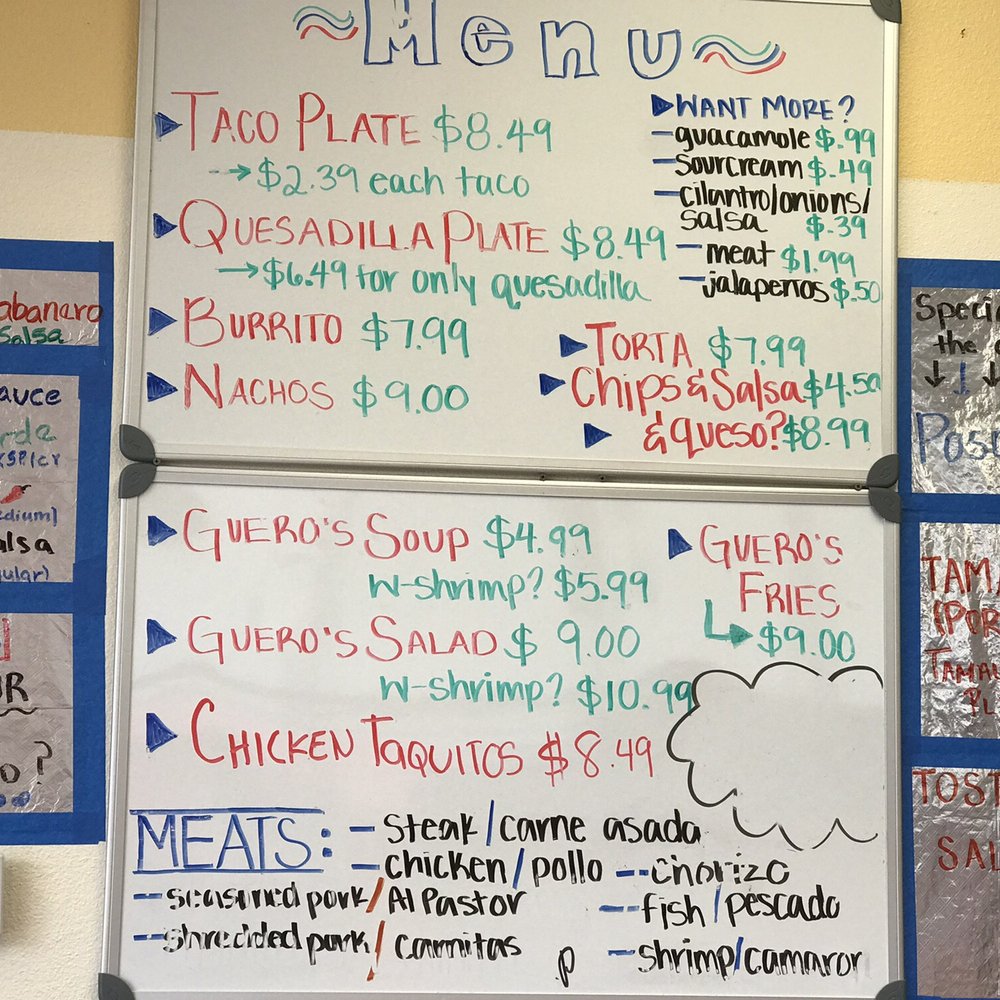 Menu
TACO PLATE $8.49
$2.39 each taco
QUESADILLA PLATE $8.49
$6.49 for only quesadilla
BURRITO $7.99
NACHOS $9.00
WANT MORE?
-guacamole $.99
-sourcream $.49
-cilantro/onions/
salsa $.39
-meat $1.99
-jalapenos $.50
TORTA $7.99
Chips & Salsa $4.50
& queso? $8.99
GUERO'S SOUP $4.99
w-shrimp? $5.99
GUERO'S SALAD $ 9.00
w-shrimp? $10.99
CHICKEN TAQUITOS $8.49
GUERO'S
FRIES
$9.00
MEATS:
- steak/carne asada
- chicken/pollo
- seasoned pork/Al Pastor
- shredded pork/carnitas
-- chorizo
-- fish/pescado
- shrimp/camaror
p
abanero
Salsa
auce
rde
medium]
alsa
gular)
OR
o?
Speci
the
Pos
TAMA
(POR
TAMAL
PL
TOST
SAL